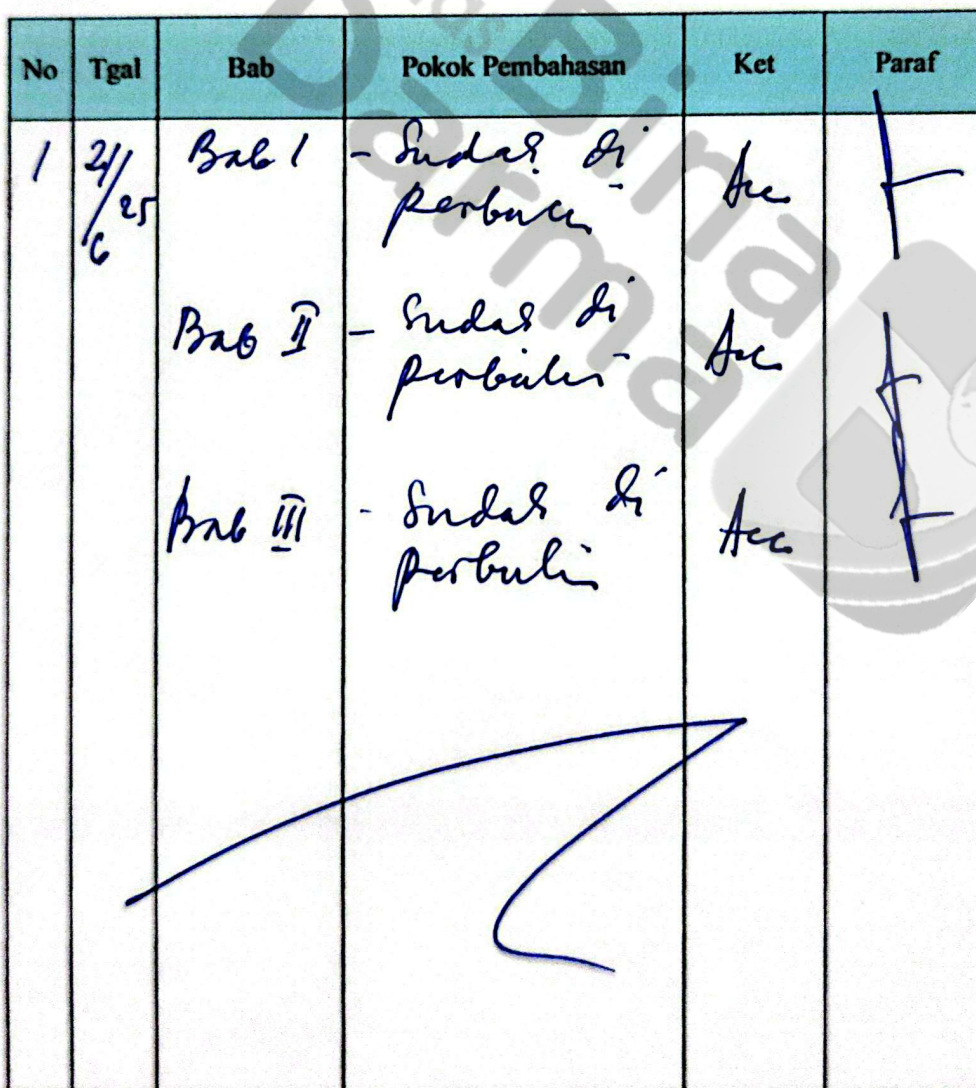 No Tgal Bab Pokok Pembahasan Ket Paraf
1 21/6 25 Bab I - Sudah di Acc
perbaiki
Bab II - Sudah di Acc
perbaiki
Bab III - Sudah di Acc
perbaiki
Bina
Darma